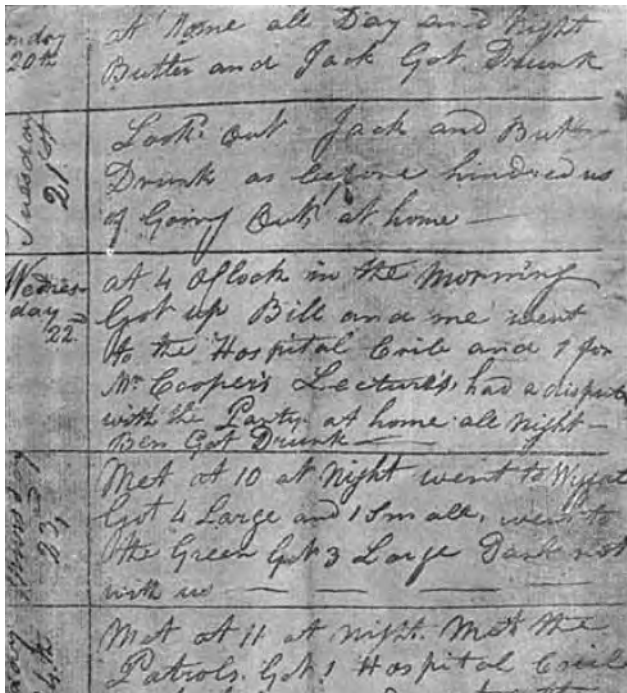 onday
20th
at Home all Day and Night
Butler and Jack Got Drunk
Tuesday
21st
Look? Out Jack and Butler
Drunk as before hindred us
of Going Out! at home —
Wednes-
day
22nd
at 4 OClock in the Morning
Got up Bill and me went
to the Hospital Crib and 1 for
Mr Cooper's Lectures, had a dispute
with the Party at home all night —
Ben Got Drunk —
Thursday
23rd
Met at 10 at Night went to Wygat
Got 4 Large and 1 Small, went to
the Green Got 3 Large Dark not
with us — — — —
day
4th
Met at 11 at Night. Met the
Patrols. Got 1 Hospital Crib